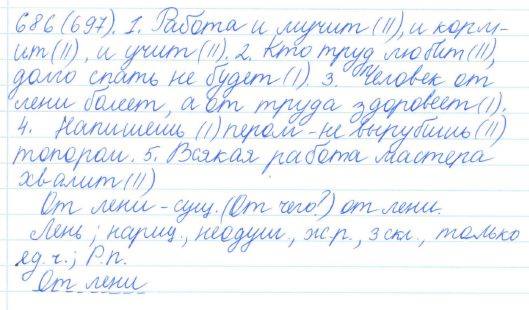 686(697). 1. Работа и мучит (II), и корм-
ит (II), и учит (II). 2. Кто труд любит (II),
долго спать не будет (I). 3. Человек от
лени болеет, а от труда здоровеет (I).
4. Напишешь (I) пером - не вырубишь (II)
топором. 5. Всякая работа мастера
хвалит (II)
От лени - сущ. (От чего?) от лени.
Лень; нариц., неодуш., ж.р., 3 скл., только
ед.ч.; Р.п.
От лени